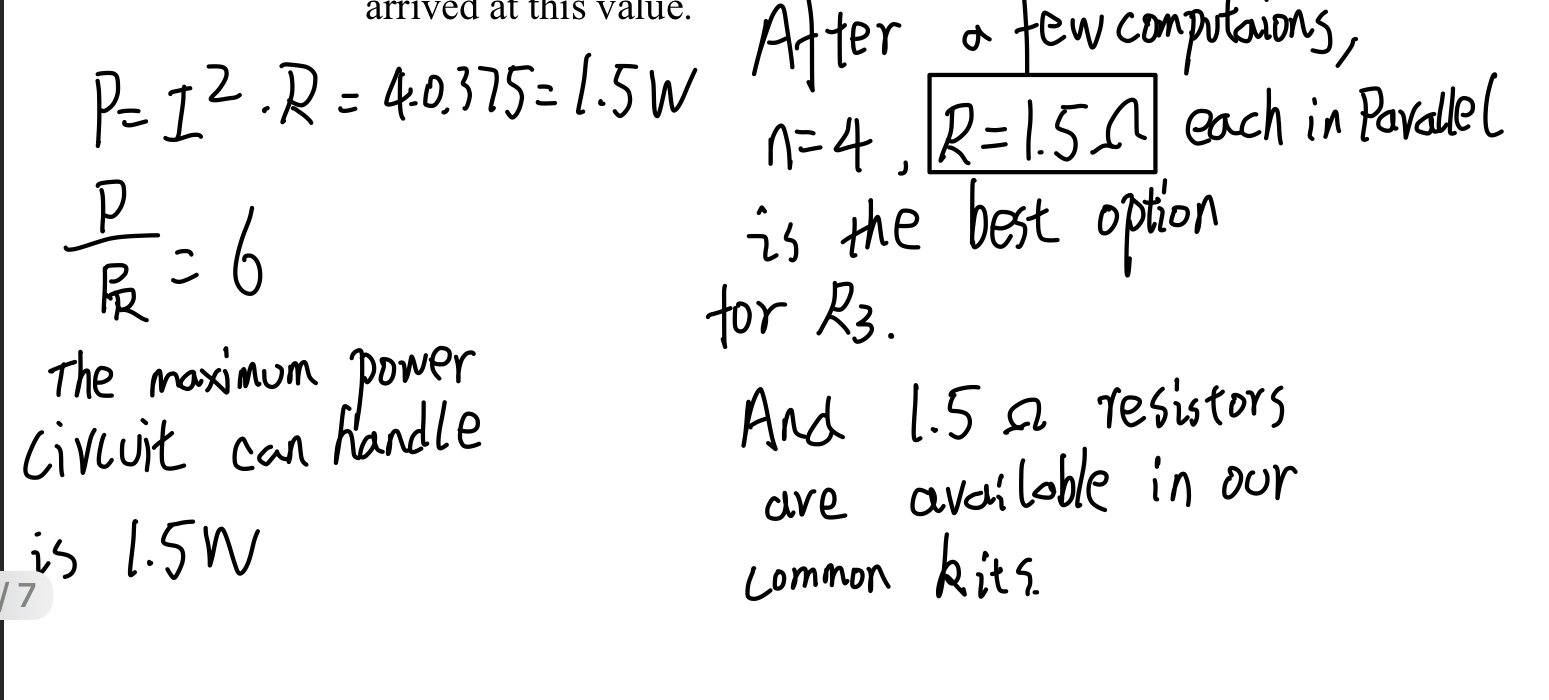 arrived at this value.
P=I²·R = 4·0.375=1.5W
P
/
P_R
= 6
The maximum power
circuit can handle
is 1.5W
/ 7
After a few computaions,
n=4, R=1.5Ω each in Parallel
is the best option
for R3.
And 1.5Ω resistors
are available in our
common kits.